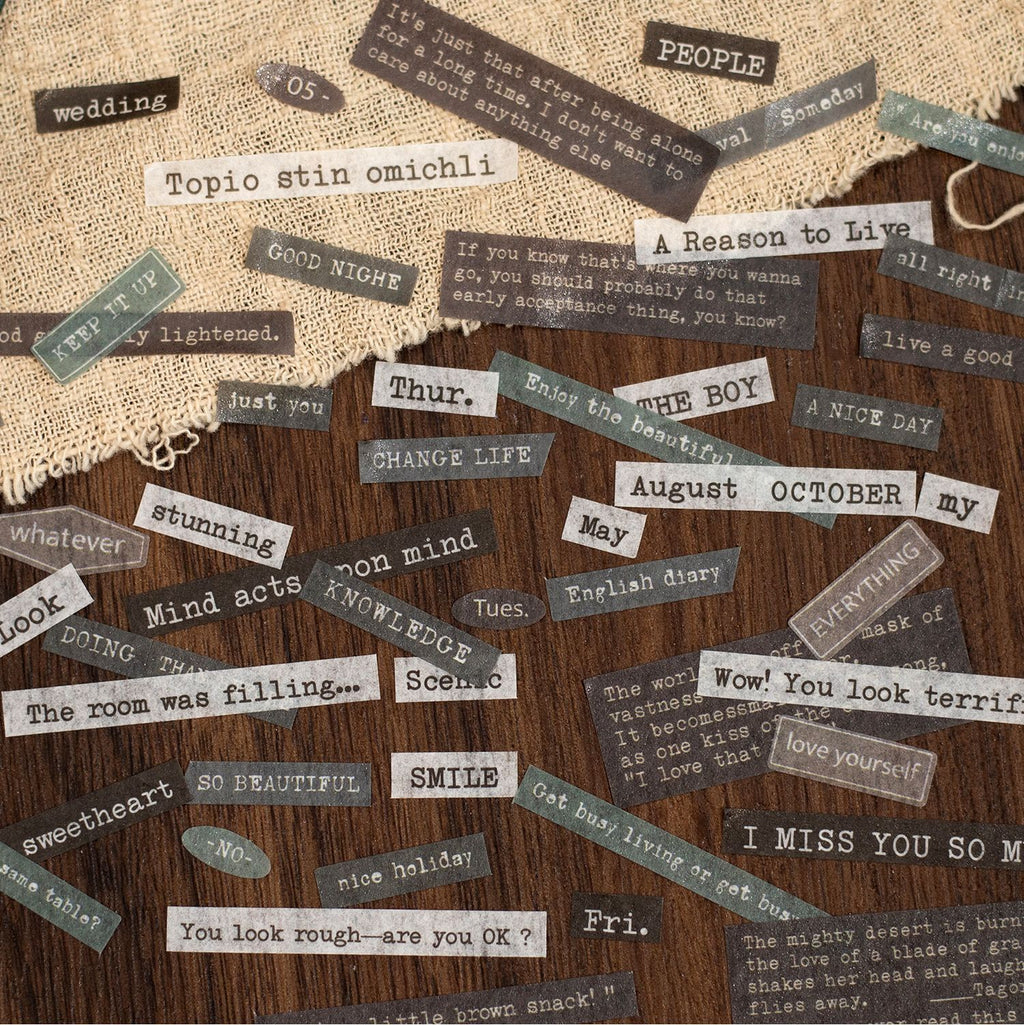 It's just that after being alone
for a long time, I don't want to
care about anything else
PEOPLE
wedding
05-
val Someday
"Are you enjo
Topio stin omichli
A Reason to Live
GOOD NIGHE
If you know that's where you wanna
go, you should probably do that
early acceptance thing, you know?
all right in
KEEP IT UP
od g ly lightened.
live a good
Thur.
Enjoy the beautiful
THE BOY
just you
A NICE DAY
CHANGE LIFE
August OCTOBER
my
stunning
whatever
May
Mind acts pon mind
English diary
EVERYTHING
KNOWLEDGE
Tues.
Look
DOING THAN
The room was filling…
Scenic
The worl off mask of
vastness ong,
It becomessma
as one kiss of the
"I love that
Wow! You look terrif
love yourself
SMILE
SO BEAUTIFUL
sweetheart
Get busy living or get busy
I MISS YOU SO M
-NO-
nice holiday
same table?
Fri.
You look rough—are you OK ?
The mighty desert is burn
the love of a blade of gra
shakes her head and laugh
flies away.
——Tagor
ver read this
little brown snack! "